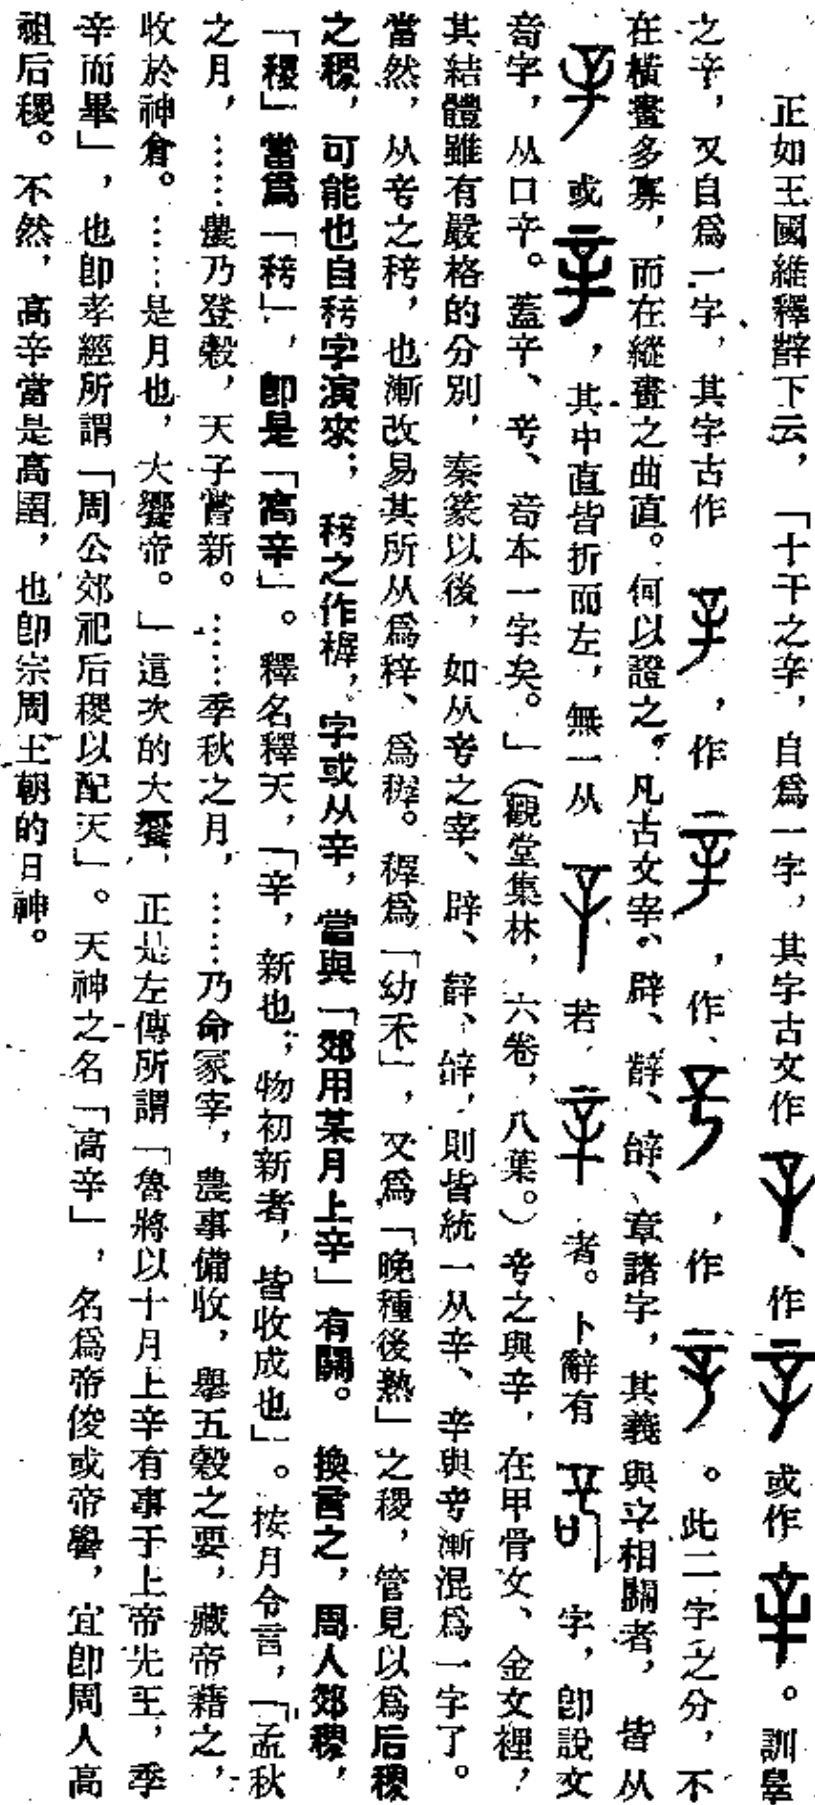 正如王國維釋辥下云，「十干之辛，自爲一字，其字古文作、作或作。訓辠
之䇂，又自爲一字，其字古作，作，作，作。此二字之分，不
在橫畫多寡，而在縱畫之曲直。何以證之，凡古文宰、辟、辥、辝、章諸字，其義與䇂相關者，皆从
或，其中直皆折而左，無一从若者。卜辭有字，卽說文
䇂字，从口䇂。蓋䇂、䇂、本一字矣。」（觀堂集林，六卷，八葉。）之與辛，在甲骨文、金文裡，
其結體雖有嚴格的分別，秦篆以後，如从之宰、辟、辥、辝，則皆統一从辛、辛與漸混爲一字了。
當然，从之，也漸改易其所从爲梓、爲稺。稺爲「幼禾」，又爲「晚種後熟」之稷，管見以爲后稷
之稷，可能也自字演來；之作樨，字或从辛，當與「郊用某月上辛」有關。換言之，周人郊稷，
「稷」當爲「」，卽是「高辛」。釋名釋天，「辛，新也；物初新者，皆收成也」。按月令言，「孟秋
之月，……農乃登穀，天子嘗新。……季秋之月，……乃命冢宰，農事備收，舉五穀之要，藏帝藉之，
收於神倉。……是月也，大饗帝。」這次的大饗，正是左傳所謂「魯將以十月上辛有事于上帝先王，季
辛而畢」，也卽孝經所謂「周公郊祀后稷以配天」。天神之名「高辛」，名爲帝俊或帝嚳，宜卽周人高
祖后稷。不然，高辛當是高圉，也卽宗周王朝的日神。